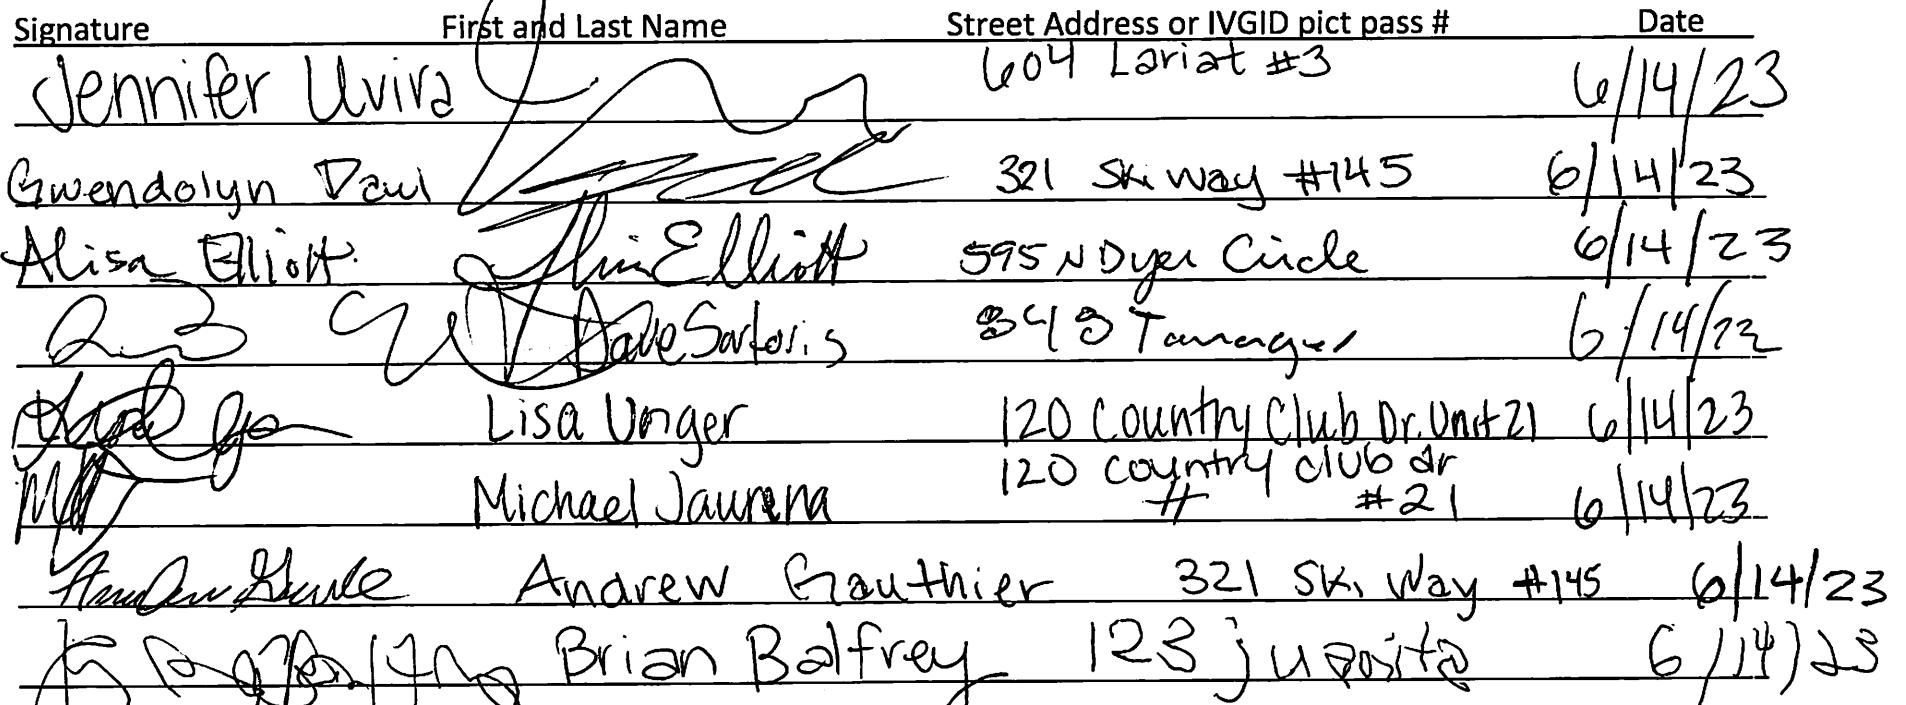 Signature First and Last Name Street Address or IVGID pict pass # Date
Jennifer Uvira 604 Lariat #3 6/14/23
Gwendolyn Daul 321 Ski Way #145 6/14/23
Alisa Elliott Elliott 595 N Dyer Circle 6/14/23
Dave Sartoris 848 Tanager 6/14/
Lisa Unger 120 Country Club Dr. Unit 21 6/14/23
Michael Jaurena 120 country club dr # #21 6/14/23
Andrew Gauthier 321 Ski Way #145 6/14/23
Brian Balfrey 123 6/14/23